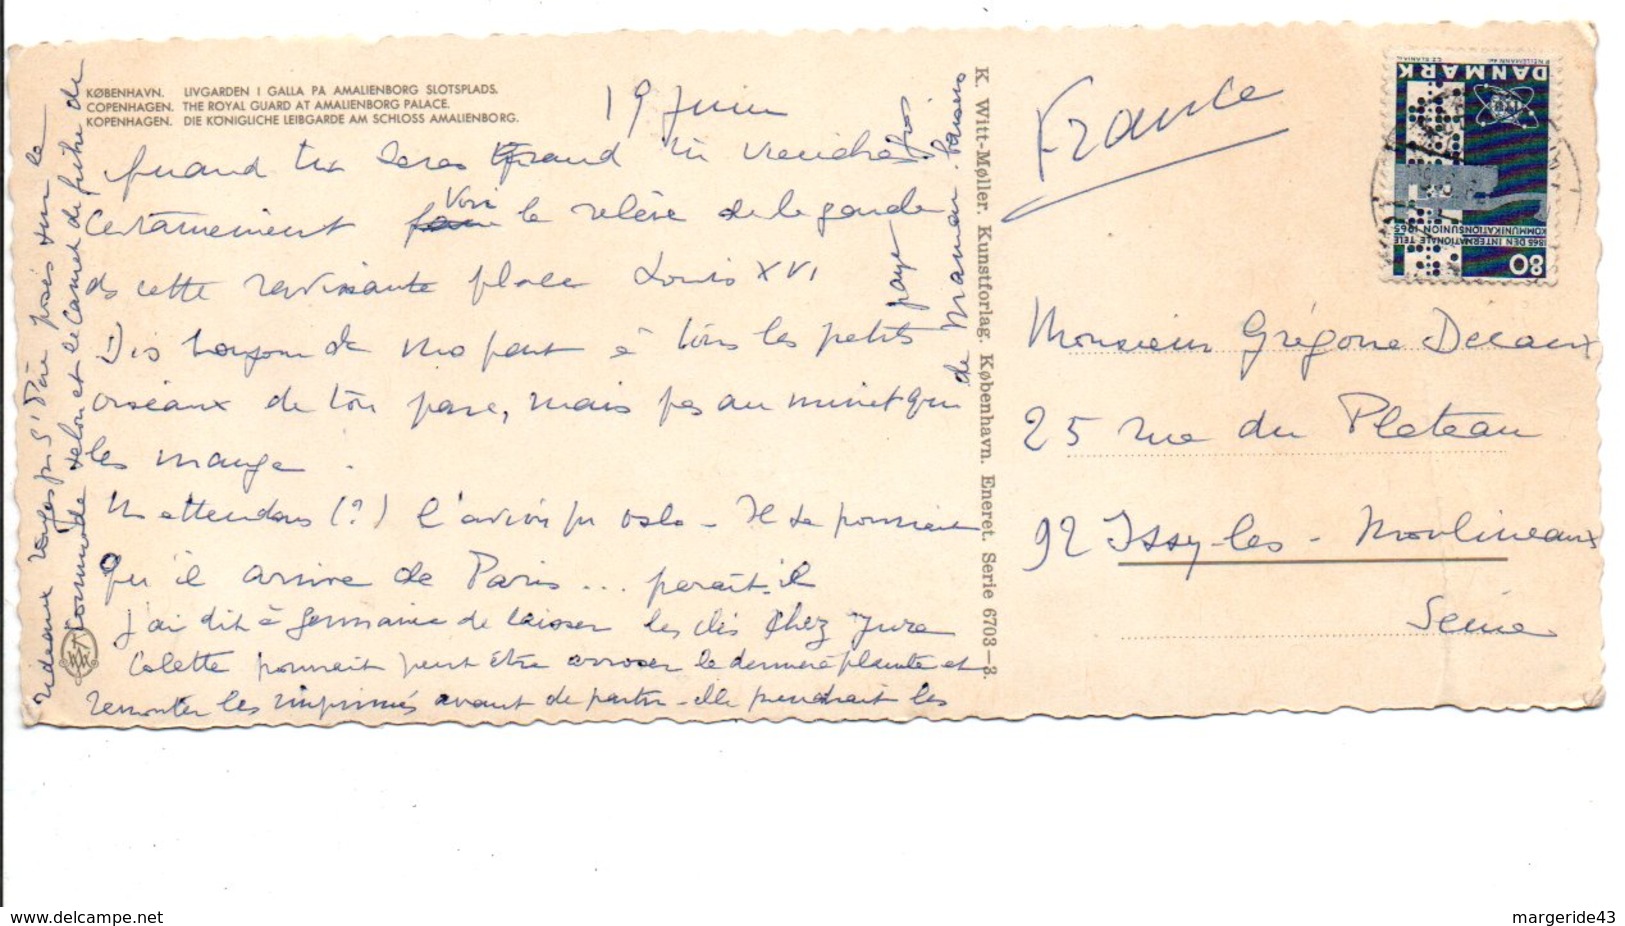 KØBENHAVN. LIVGARDEN I GALLA PÅ AMALIENBORG SLOTSPLADS.
COPENHAGEN. THE ROYAL GUARD AT AMALIENBORG PALACE.
KOPENHAGEN. DIE KÖNIGLICHE LEIBGARDE AM SCHLOSS AMALIENBORG.
19 Juin
Quand tu seras grand tu viendras
certainement voir la relève de la garde
de cette ravissante place Louis XVI
Dis bonjour de ma part à tous les petits
oiseaux de ton parc, mais pas au minet qui
les mange.
Ns attendons (?) l'avion pr Oslo - Il se pourrait
qu'il arrive de Paris... paraît-il
J'ai dit à Germaine de laisser les clés chez
Colette pourrait peut être arroser la dernière plante et
remonter les imprimés avant de partir - elle prendrait les
rideaux rouges pr S. Père posés sur la
commode salon et le carnet de
de Maman. Baisers
K. Witt-Møller. Kunstforlag. København. Eneret. Serie 6703-3.
France
Monsieur Grégoire Decaux
25 rue du Plateau
92 Issy-les-Moulineaux
Seine
DANMARK
1865 DEN INTERNATIONALE TELE
KOMMUNIKATIONSUNION 1965
80
www.delcampe.net
margeride43